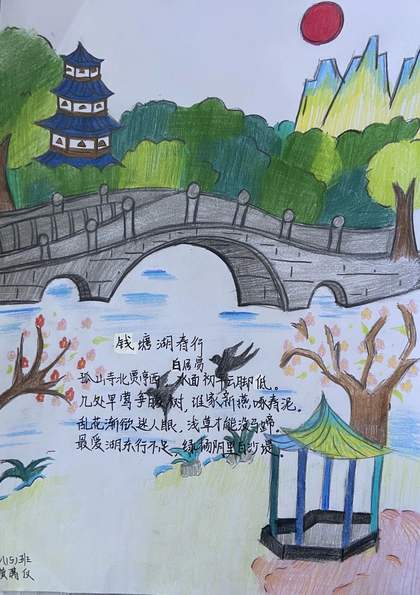 钱塘湖春行
白居易
孤山寺北贾亭西，水面初平云脚低。
几处早莺争暖树，谁家新燕啄春泥。
乱花渐欲迷人眼，浅草才能没马蹄。
最爱湖东行不足，绿杨阴里白沙堤。
八(5)班